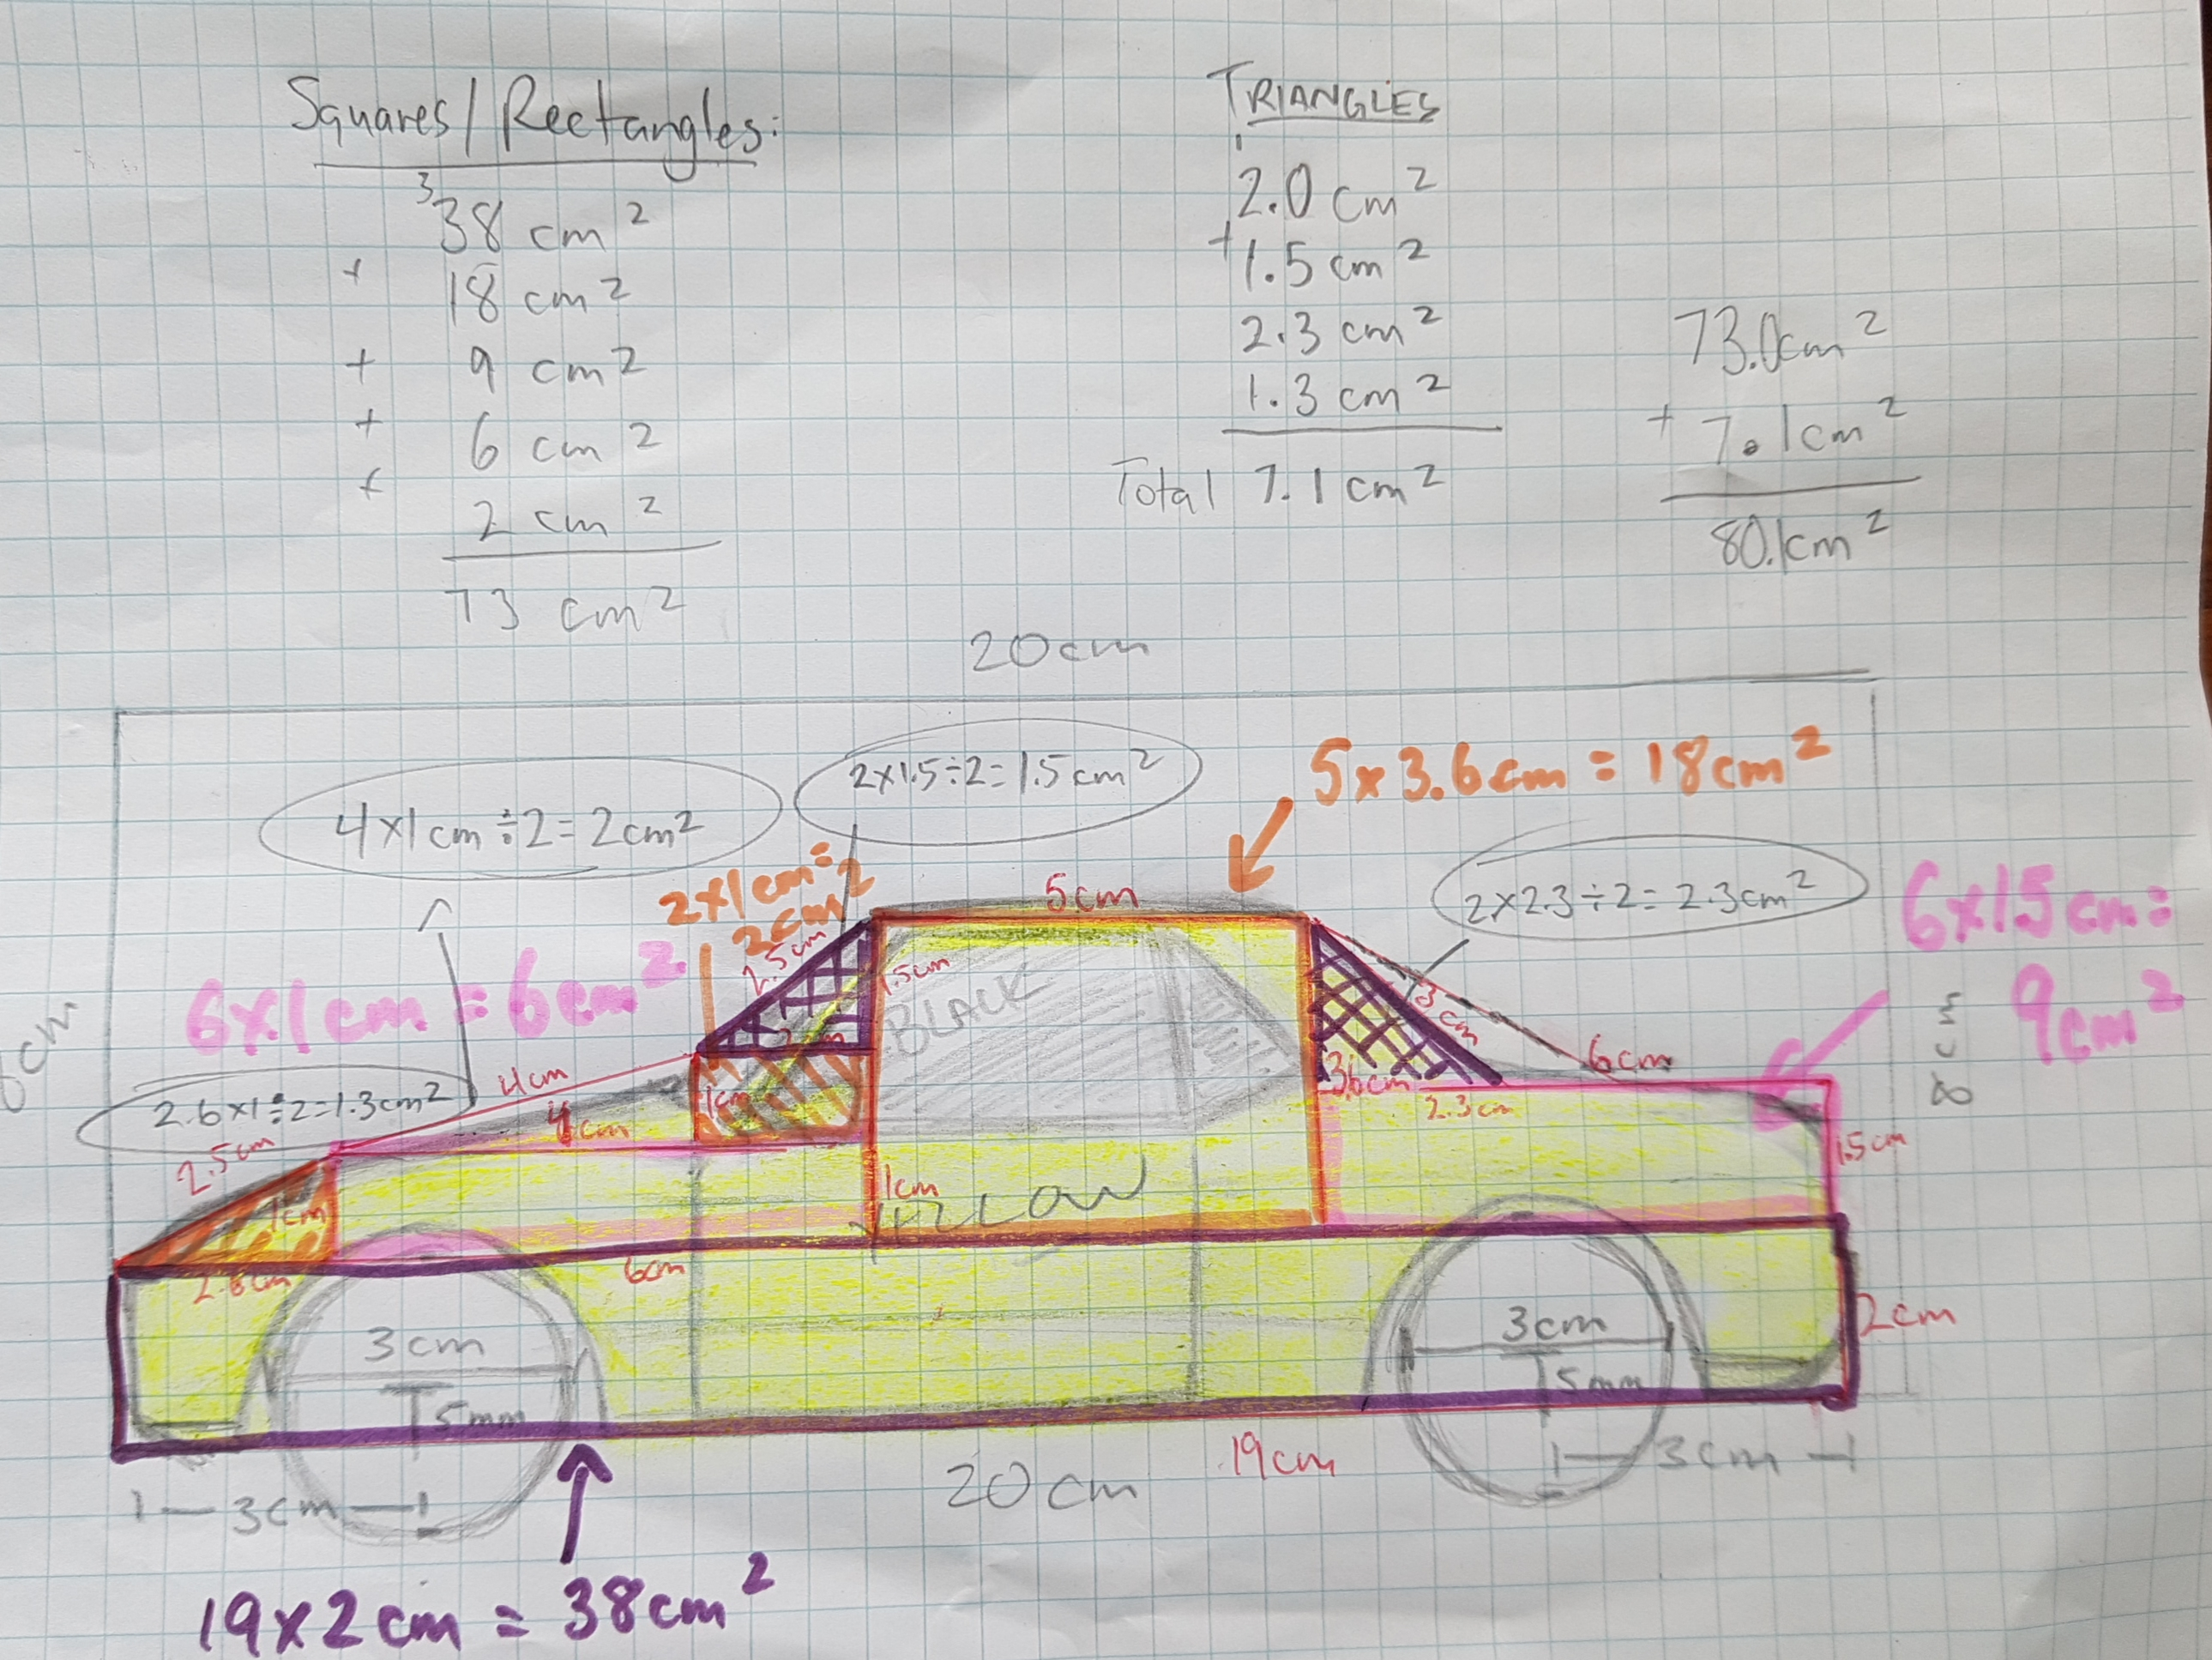 Squares/Rectangles:
3
38 cm²
+ 18 cm²
+ 9 cm²
+ 6 cm²
+ 2 cm²
73 cm²
TRIANGLES
2.0 cm²
+ 1.5 cm²
2.3 cm²
1.3 cm²
Total 7.1 cm²
73.0cm²
+ 7.1cm²
80.1cm²
20cm
4x1cm÷2=2cm²
2x1.5÷2=1.5cm²
5x3.6cm=18cm²
2x1cm=
2cm²
5cm
2x2.3÷2=2.3cm²
6x15cm=
9cm²
6x1cm=6cm²
2.5cm
1.5cm
BLACK
3cm
6cm
8cm
2.6x1÷2=1.3cm²
4cm
4cm
1cm
3.6cm
2.3cm
1.5cm
2.5cm
1cm
1cm
YELLOW
2.6cm
6cm
2cm
3cm
5mm
3cm
5mm
19cm
20cm
3cm
3cm
19x2cm=38cm²